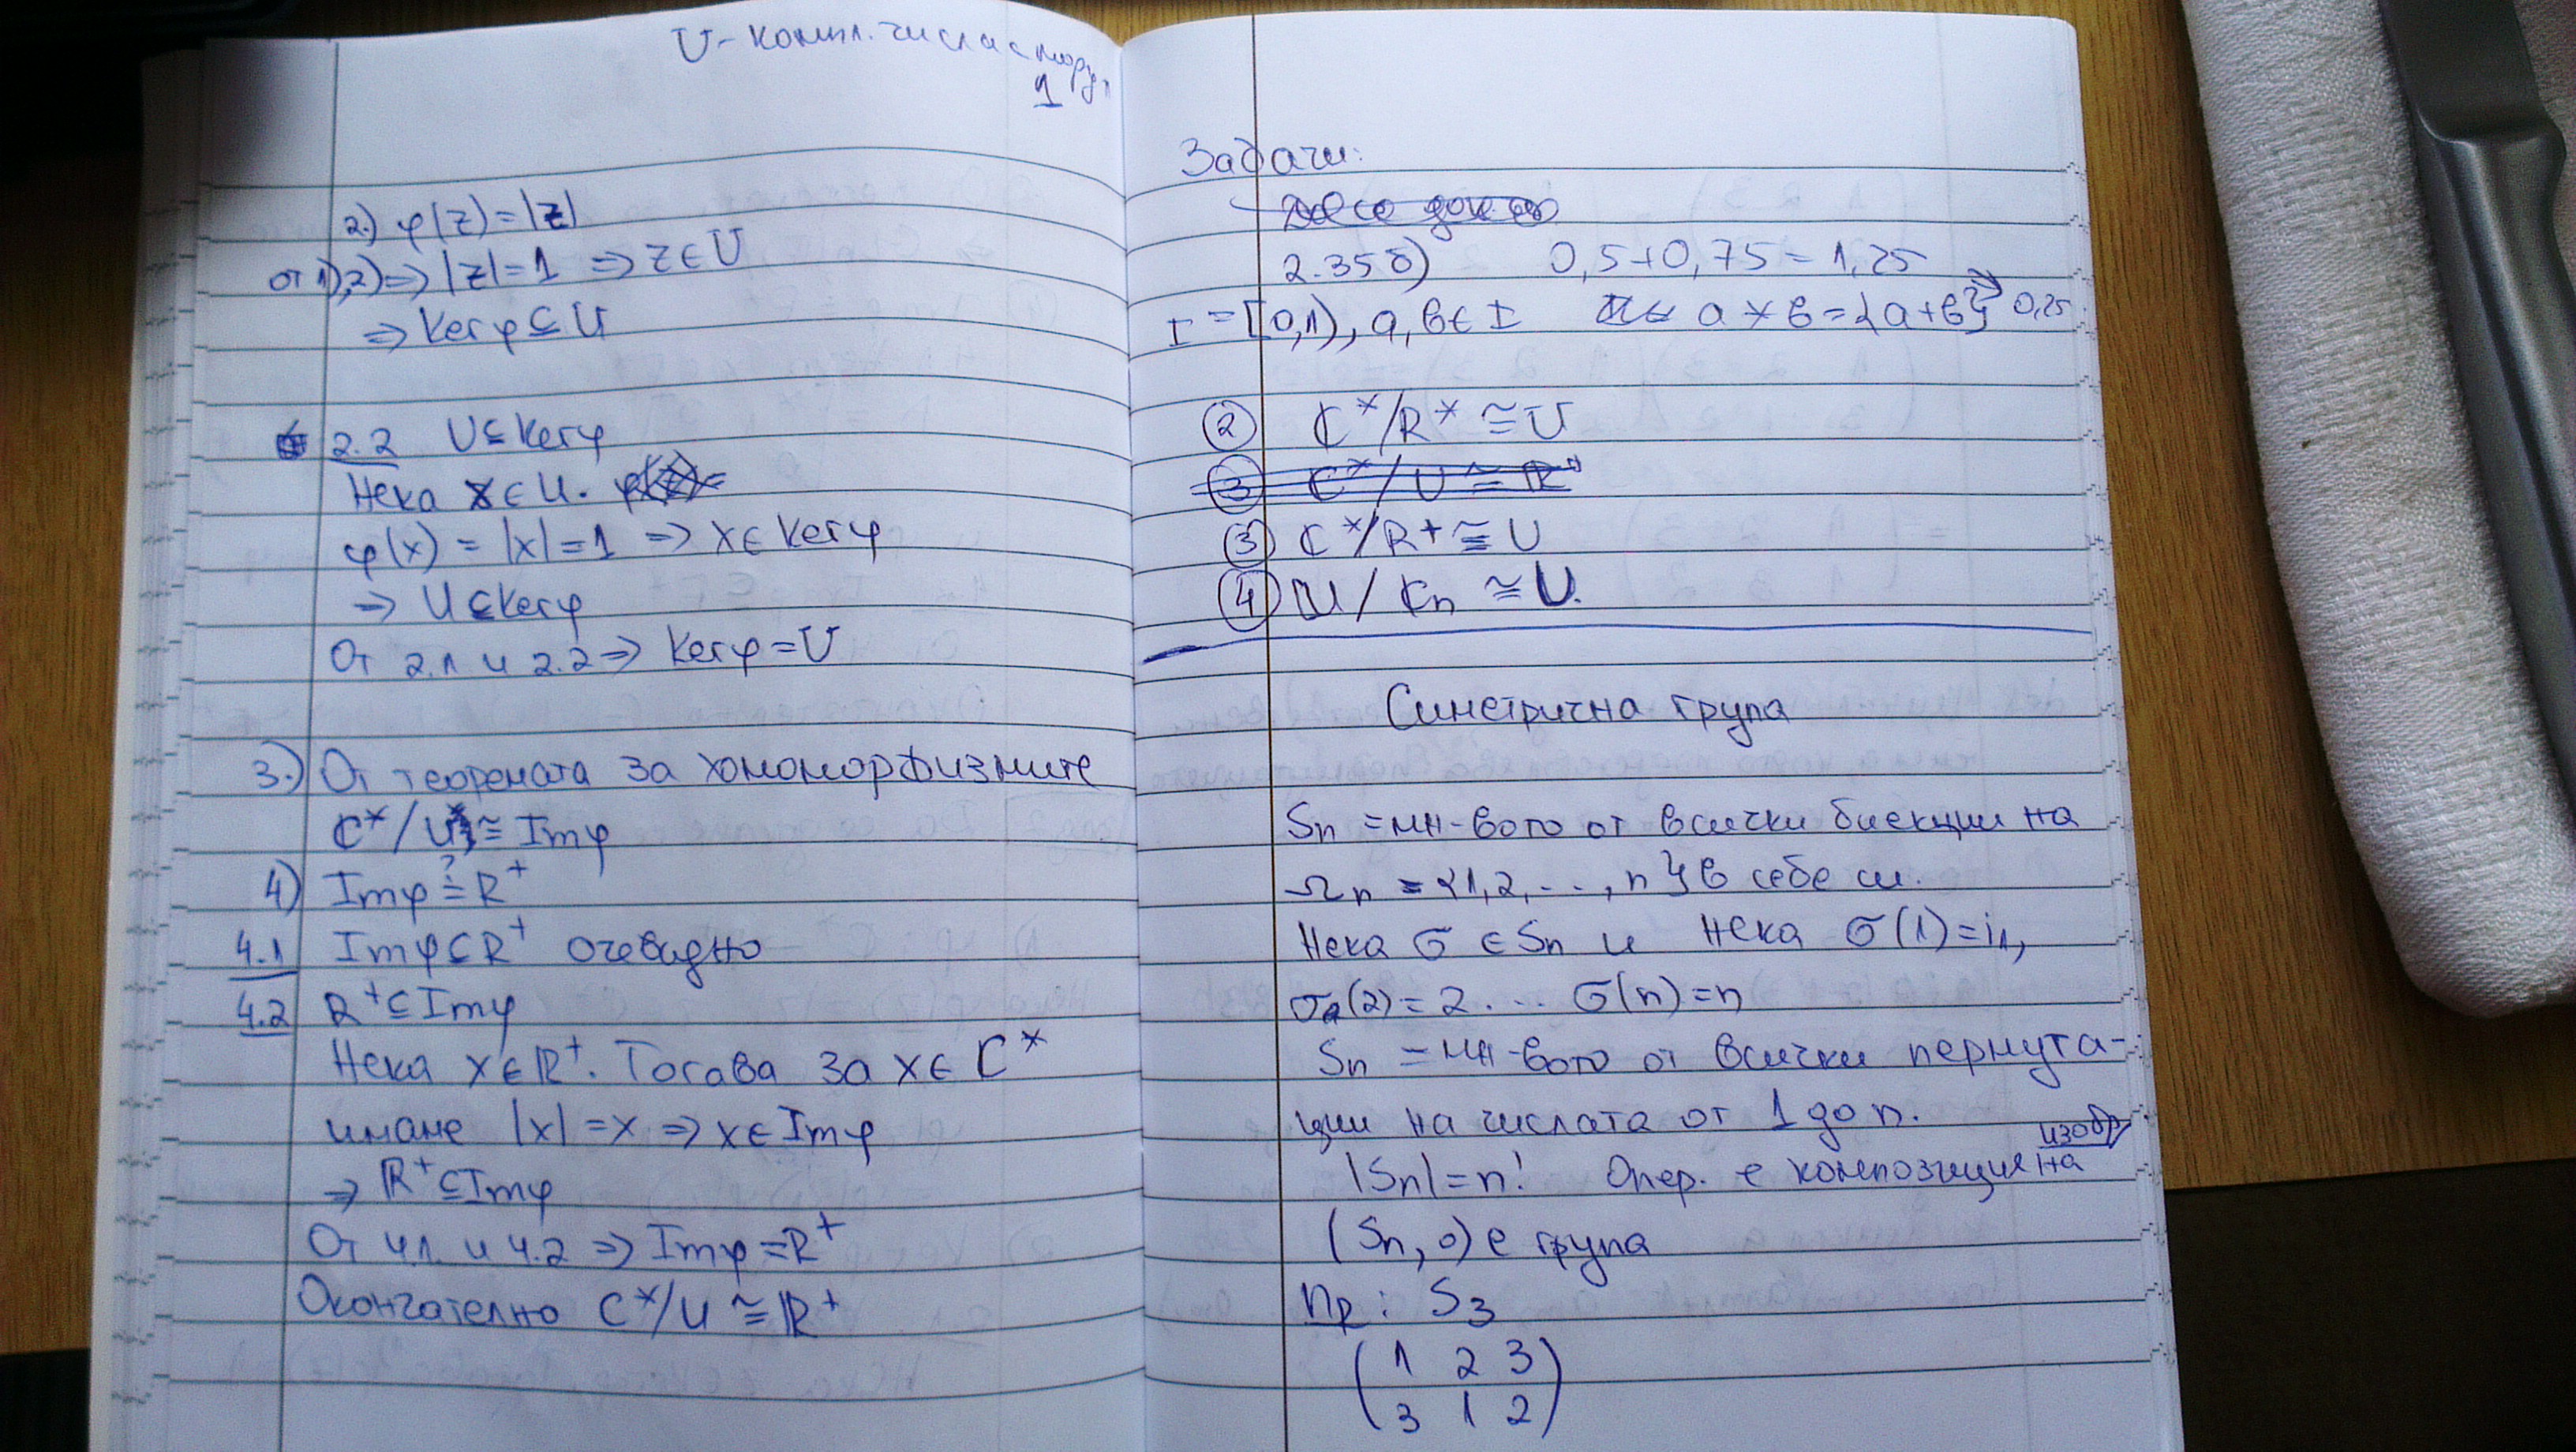 U - компл. числа с модул
1
2.) φ(z) = |z|
от 1), 2) => |z| = 1 => z ∈ U
=> Ker φ ⊆ U
2.2 U ⊆ Ker φ
Нека x ∈ U.
φ(x) = |x| = 1 => x ∈ Ker φ
=> U ⊆ Ker φ
От 2.1 и 2.2 => Ker φ = U
3.) От теоремата за хомоморфизмите
C* / U ≅ Im φ
4) Im φ ≟ R⁺
4.1 Im φ ⊆ R⁺ очевидно
4.2 R⁺ ⊆ Im φ
Нека x ∈ R⁺. Тогава за x ∈ C*
имаме |x| = x => x ∈ Im φ
=> R⁺ ⊆ Im φ
От 4.1. и 4.2 => Im φ = R⁺
Окончателно C*/U ≅ R⁺
Задачи:
2.35 б) 0,5 + 0,75 = 1,25
I = [0,1), a, b ∈ I a * b = {a+b} → 0,25
② C*/R* ≅ U
③ C*/U ≅ R⁺
③ C*/R⁺ ≅ U
④ U / Cn ≅ U.
Симетрична група
Sn = мн-вото от всички биекции на
Ωn = {1,2,..., n} в себе си.
Нека σ ∈ Sn и нека σ(1) = i₁,
σ(2) = 2 ... σ(n) = n
Sn = мн-вото от всички пермута-
ции на числата от 1 до n.
|Sn| = n! Опер. е композиция на изобр
(Sn, o) е група
Пр: S₃
( 1 2 3 )
( 3 1 2 )